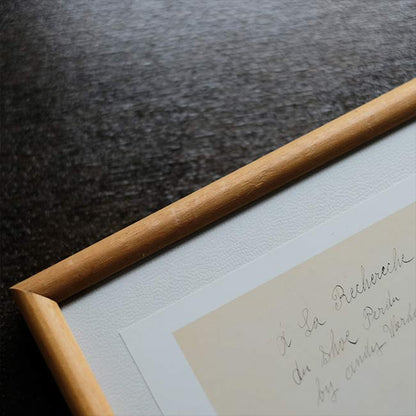 à La Recherche
du Shoe Perdu
by Andy